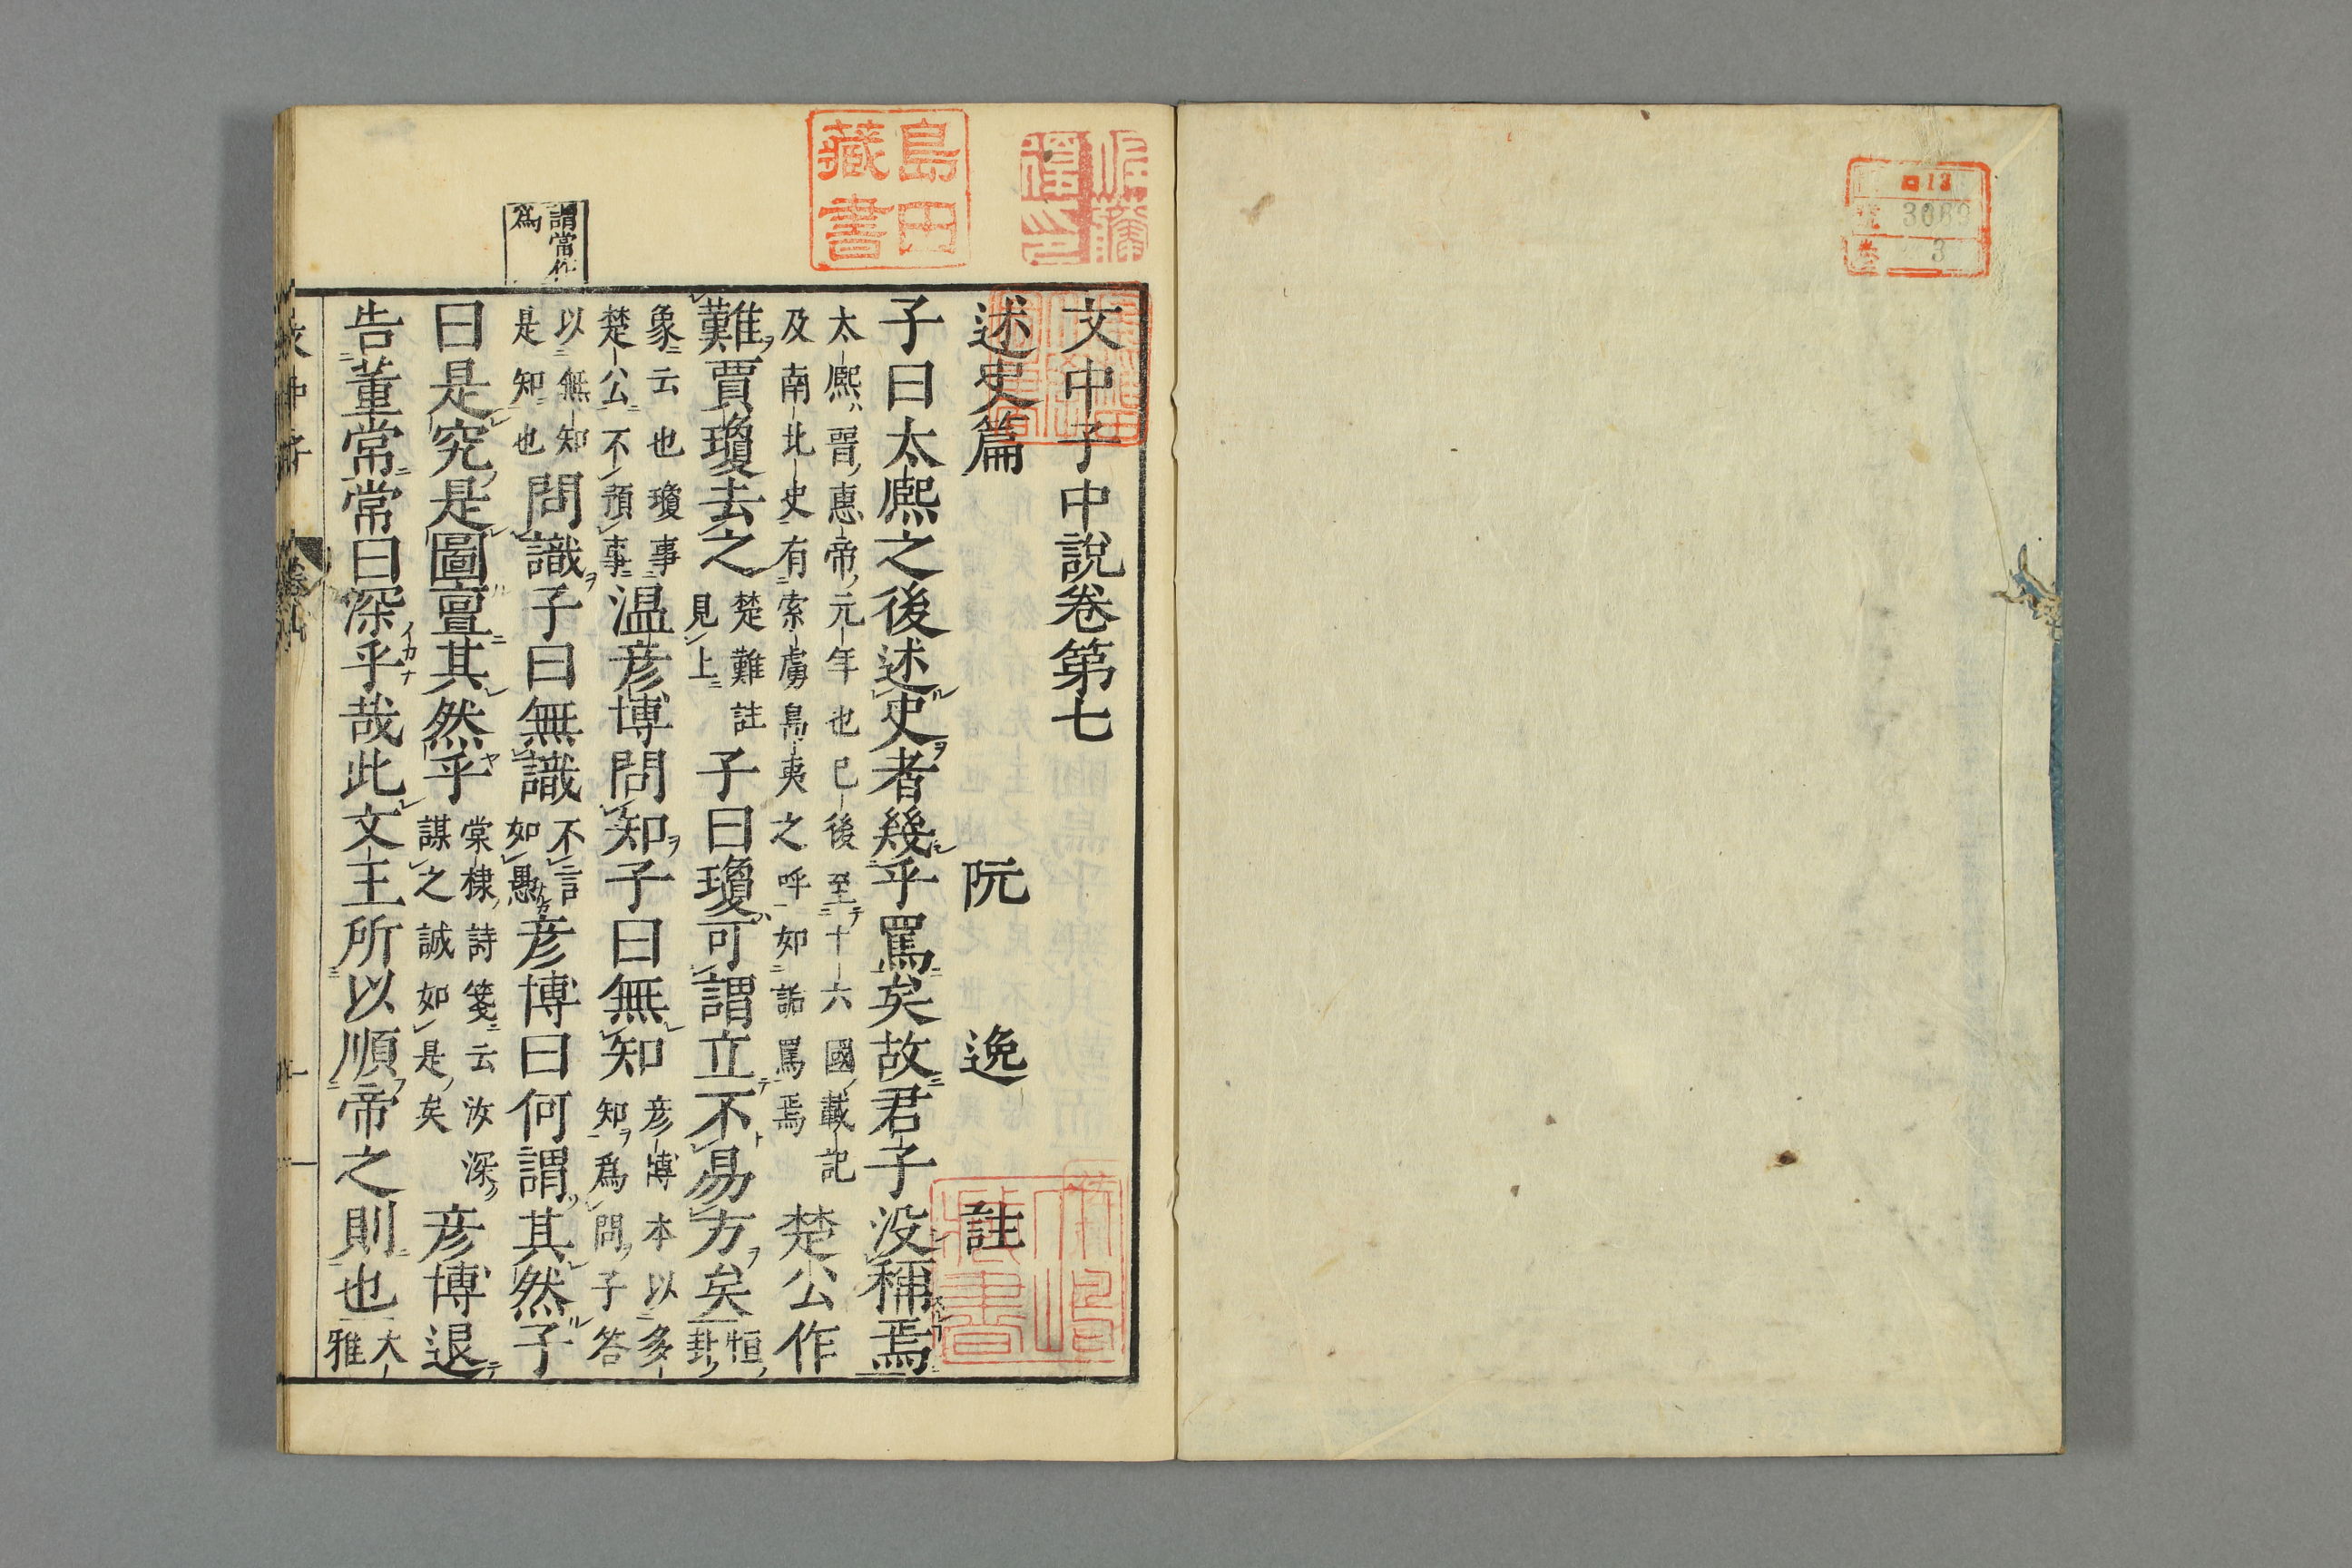 13
3069
3
島田
藏書
文中子中說卷第七
述史篇　阮　逸　註
子曰太熈之後述史者幾乎罵矣故君子没稱焉
太熈晉惠帝元年也已後至十六國載記
及南北史有索虜島夷之呼如詬罵焉
楚公作
難賈瓊去之
楚難註
見上
子曰瓊可謂立不易方矣
恒
卦
象云也瓊事
楚公不預事
温彦博問知子曰無知
彦博本以多
知爲問子答
謂當作
爲
以無知
是知也
問識子曰無識
不言
如愚
彦博曰何謂其然子
曰是究是圖亶其然乎
棠棣詩箋云汝深
謀之誠如是矣
彦博退
告董常常曰深乎哉此文王所以順帝之則也
大
雅